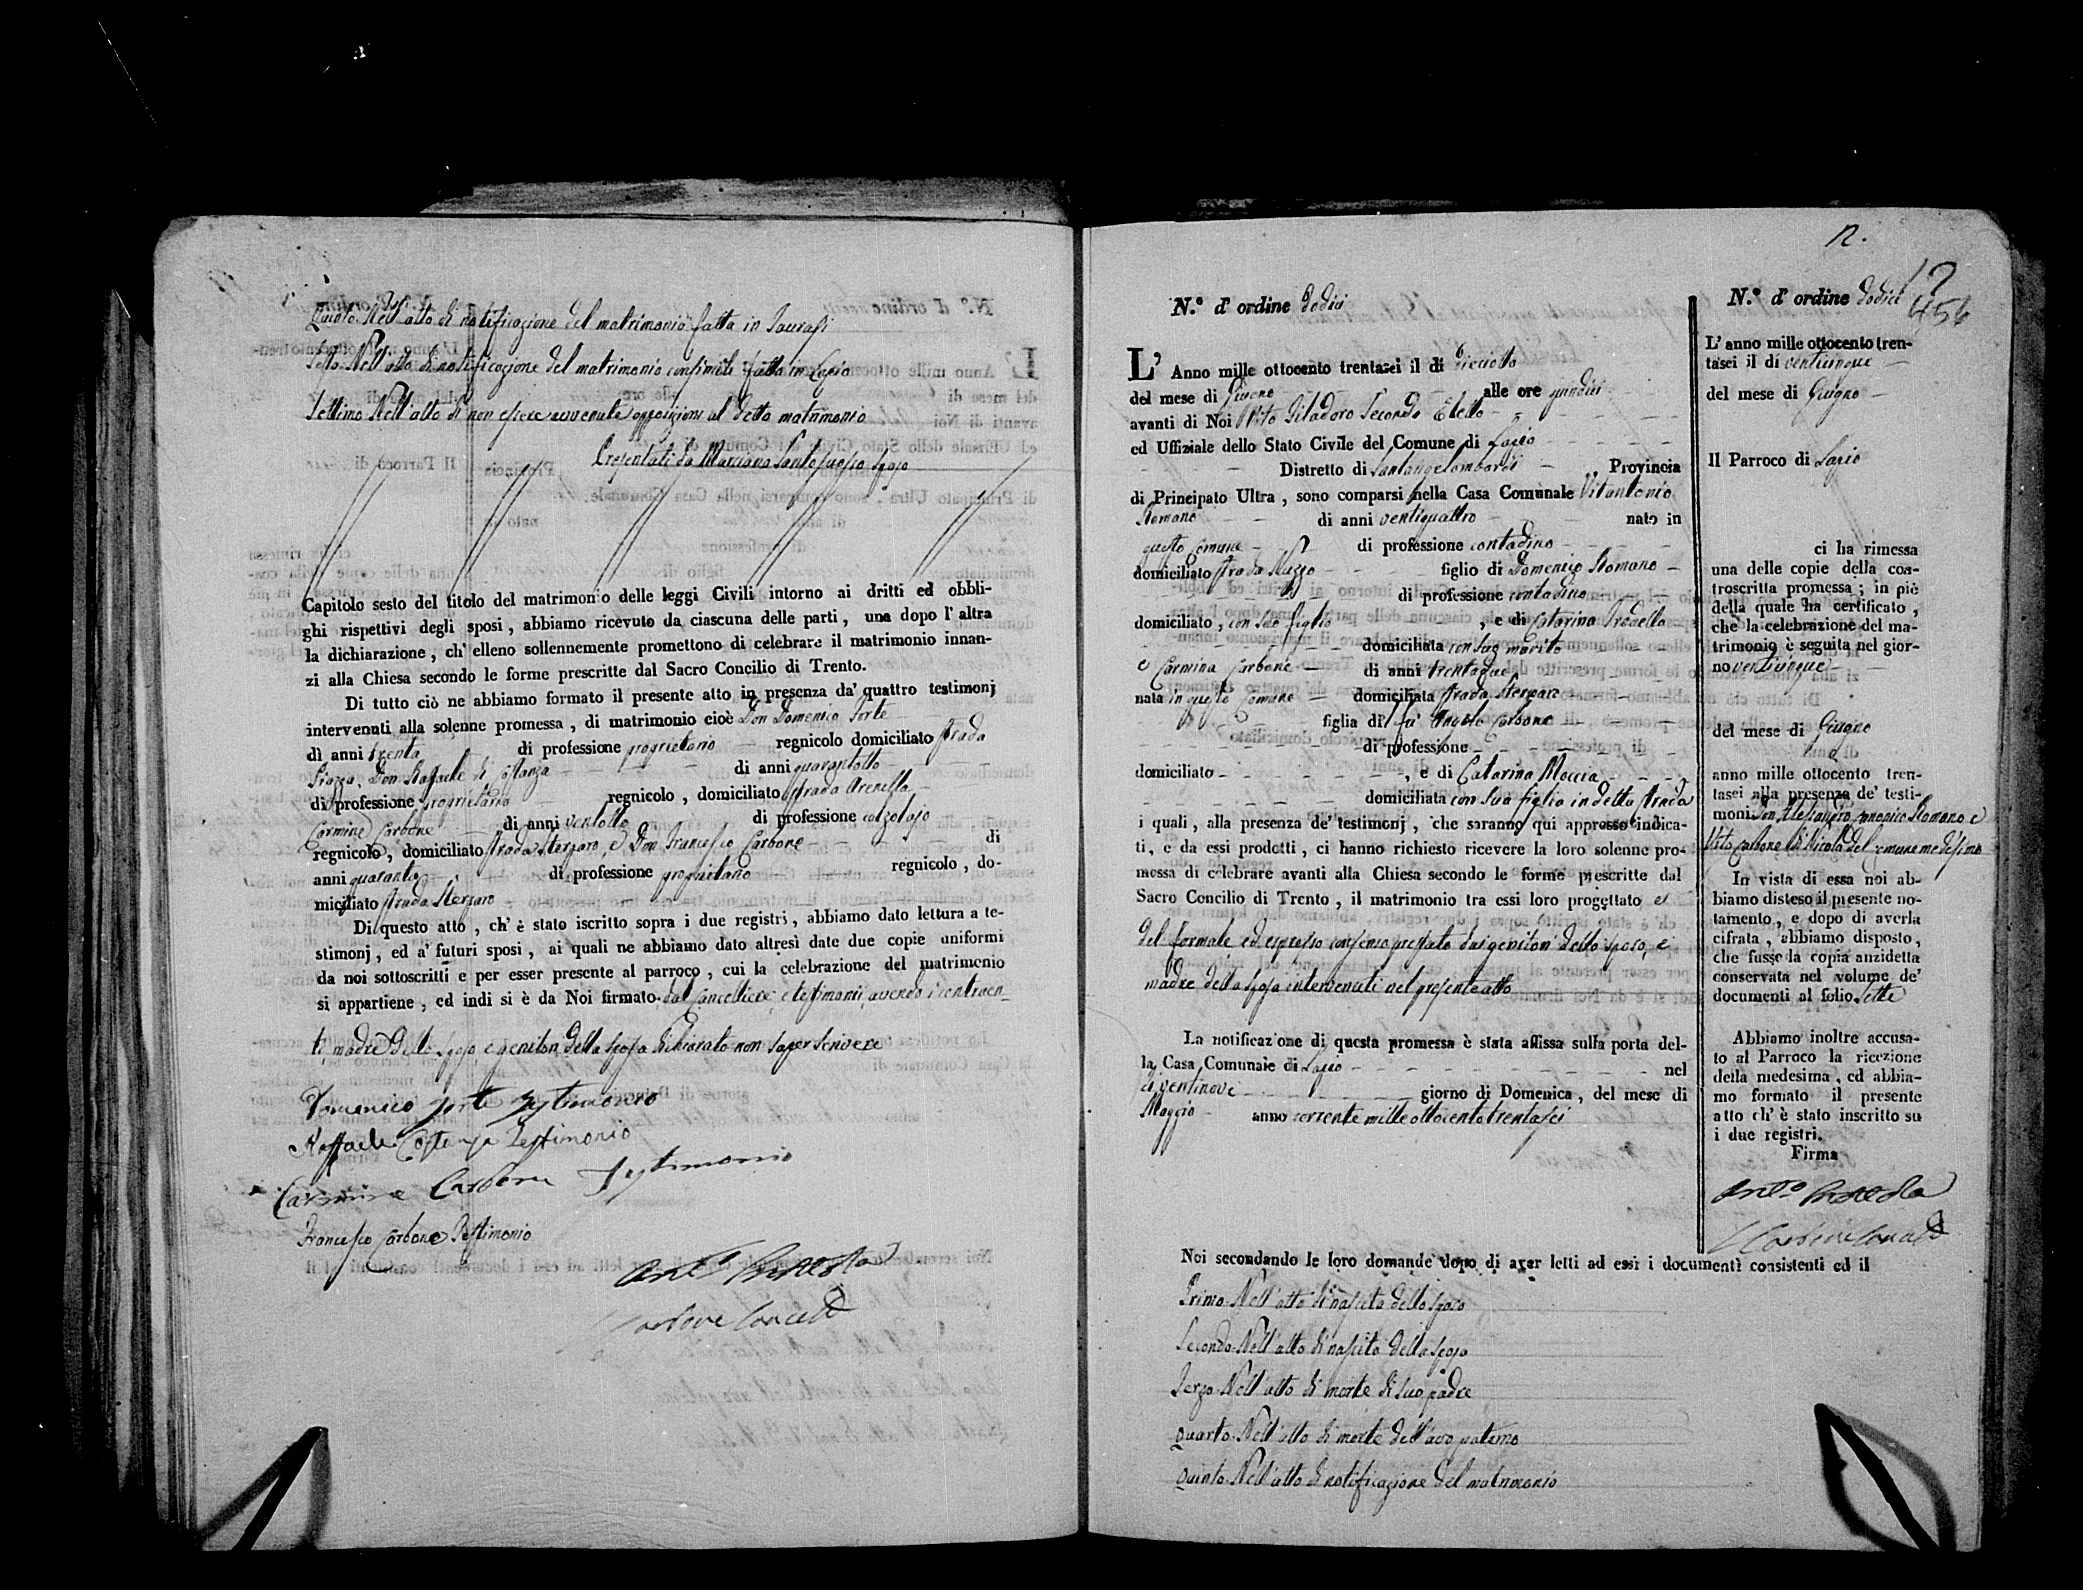 Quinto Nell'atto di notificazione del matrimonio fatta in Taurasi
Sesto Nell'atto di notificazione del matrimonio consimile fatta in Lapio
Settimo Nell'atto di non essere avvenute opposizioni al detto matrimonio
Presentati da Marciano Santosuosso sposo
Capitolo sesto del titolo del matrimonio delle leggi Civili intorno ai dritti ed obbli-
ghi rispettivi degli sposi, abbiamo ricevuto da ciascuna delle parti, una dopo l'altra
la dichiarazione, ch'elleno sollennemente promettono di celebrare il matrimonio innan-
zi alla Chiesa secondo le forme prescritte dal Sacro Concilio di Trento.
Di tutto ciò ne abbiamo formato il presente atto in presenza da' quattro testimonj
intervenuti alla solenne promessa, di matrimonio cioè Don Domenico Forte
di anni trenta di professione proprietario regnicolo domiciliato strada
Piazza, Don Raffaele di Costanza di anni quarantotto
di professione proprietario regnicolo, domiciliato strada Arenella
Carmine Carbone di anni ventotto di professione calzolajo
regnicolo, domiciliato strada Sterparo, e Don Francesco Carbone di
anni quaranta di professione proprietario regnicolo, do-
miciliato strada Sterparo
Di questo atto, ch'è stato iscritto sopra i due registri, abbiamo dato lettura a te-
stimonj, ed a' futuri sposi, ai quali ne abbiamo dato altresì date due copie uniformi
da noi sottoscritti e per esser presente al parroco, cui la celebrazione del matrimonio
si appartiene, ed indi si è da Noi firmato dal Cancelliere, e testimonj, avendo i contraen-
ti, madre dello sposo e genitori della sposa dichiarato non saper scrivere
Domenico Forte testimonio
Raffaele Costanza Testimonio
Carmine Carbone Testimonio
Francesco Carbone Testimonio
Carbone
12.
12
454
N.° d'ordine dodici
L'Anno mille ottocento trentasei il di dieciotto
del mese di Giugno alle ore quindici
avanti di Noi Vito Giladoro Secondo Eletto
ed Uffiziale dello Stato Civile del Comune di Lapio
Distretto di Santangelombardi Provincia
di Principato Ultra, sono comparsi nella Casa Comunale Vitantonio
Romano di anni ventiquattro nato in
questo Comune di professione contadino
domiciliato strada figlio di Domenico Romano
di professione contadino
domiciliato, con suo figlio, e di Catarina
domiciliata con suo marito
e Carmina Carbone di anni trentadue
nata in questo Comune domiciliata strada Sterparo
figlia di fu Angelo Carbone
di professione
domiciliato, e di Catarina Moccia
domiciliata con sua figlia in detta strada
i quali, alla presenza de' testimonj, che saranno qui appresso indica-
ti, e da essi prodotti, ci hanno richiesto ricevere la loro solenne pro-
messa di celebrare avanti alla Chiesa secondo le forme prescritte dal
Sacro Concilio di Trento, il matrimonio tra essi loro progettato e
del formale ed espresso consenso prestato dai genitori dello sposo, e
madre della sposa intervenuti nel presente atto
La notificazione di questa promessa è stata affissa sulla porta del-
la Casa Comunale di Lapio nel
dì ventinove giorno di Domenica, del mese di
Maggio anno corrente mille ottocento trentasei
Noi secondando le loro domande dopo di aver letti ad essi i documenti consistenti ed il
Primo Nell'atto di nascita dello sposo
Secondo Nell'atto di nascita della sposa
Terzo Nell'atto di morte di suo padre
Quarto Nell'atto di morte dell'avo paterno
Quinto Nell'atto di notificazione del matrimonio
N.° d'ordine dodici
L'anno mille ottocento tren-
tasei il di venticinque
del mese di Giugno
Il Parroco di Lapio
ci ha rimessa
una delle copie della con-
troscritta promessa; in piè
della quale ha certificato,
che la celebrazione del ma-
trimonio è seguita nel gior-
no venticinque
del mese di Giugno
anno mille ottocento tren-
tasei alla presenza de' testi-
moni Don Alesandro Canonico Romano e
Vito Carbone di Nicola del Comune medesimo
In vista di essa noi ab-
biamo disteso il presente no-
tamento, e dopo di averla
cifrata, abbiamo disposto,
che fusse la copia anzidetta
conservata nel volume de'
documenti al folio sette
Abbiamo inoltre accusa-
to al Parroco la ricezione
della medesima, ed abbia-
mo formato il presente
atto ch'è stato inscritto su
i due registri.
Firma
Carbone